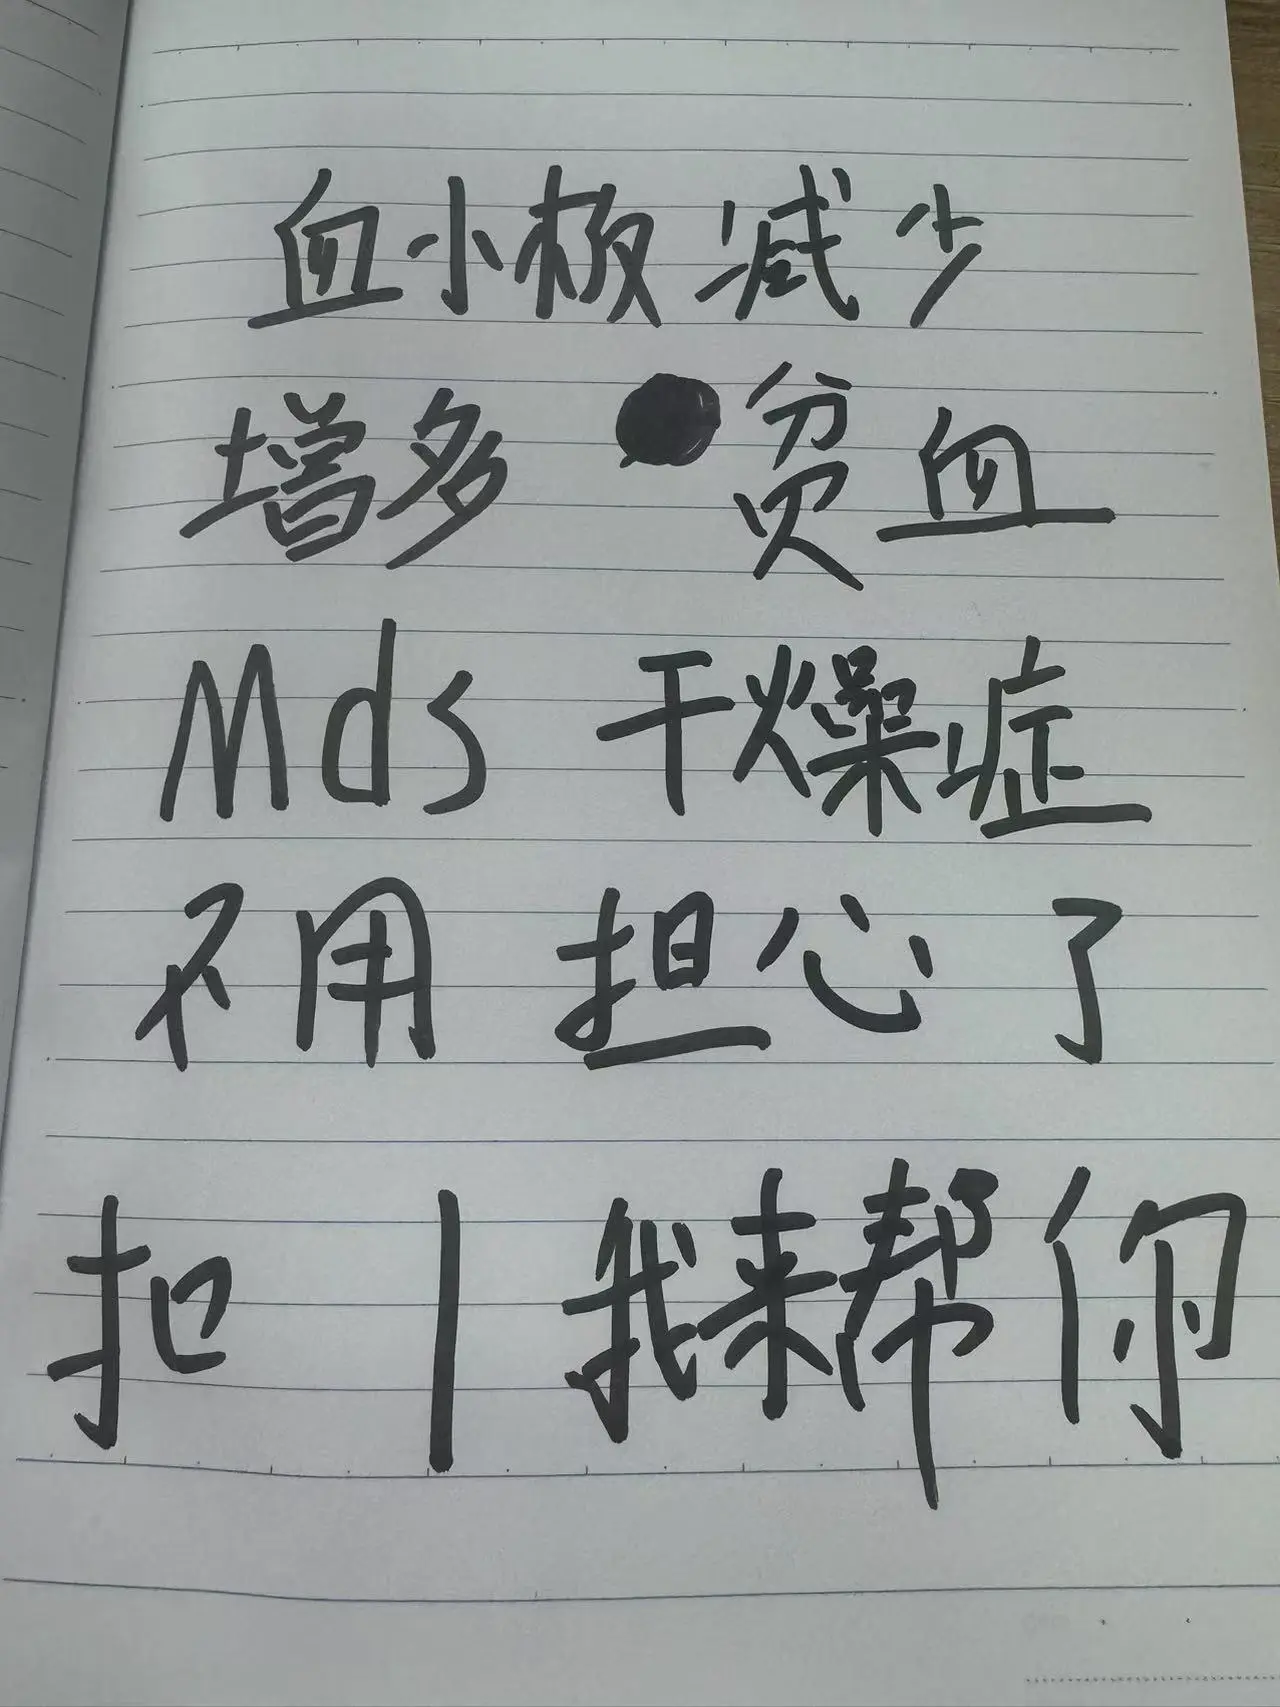 血小板减少
增多 贫血
Mds 干燥症
不用担心了
扣 1 我来帮你